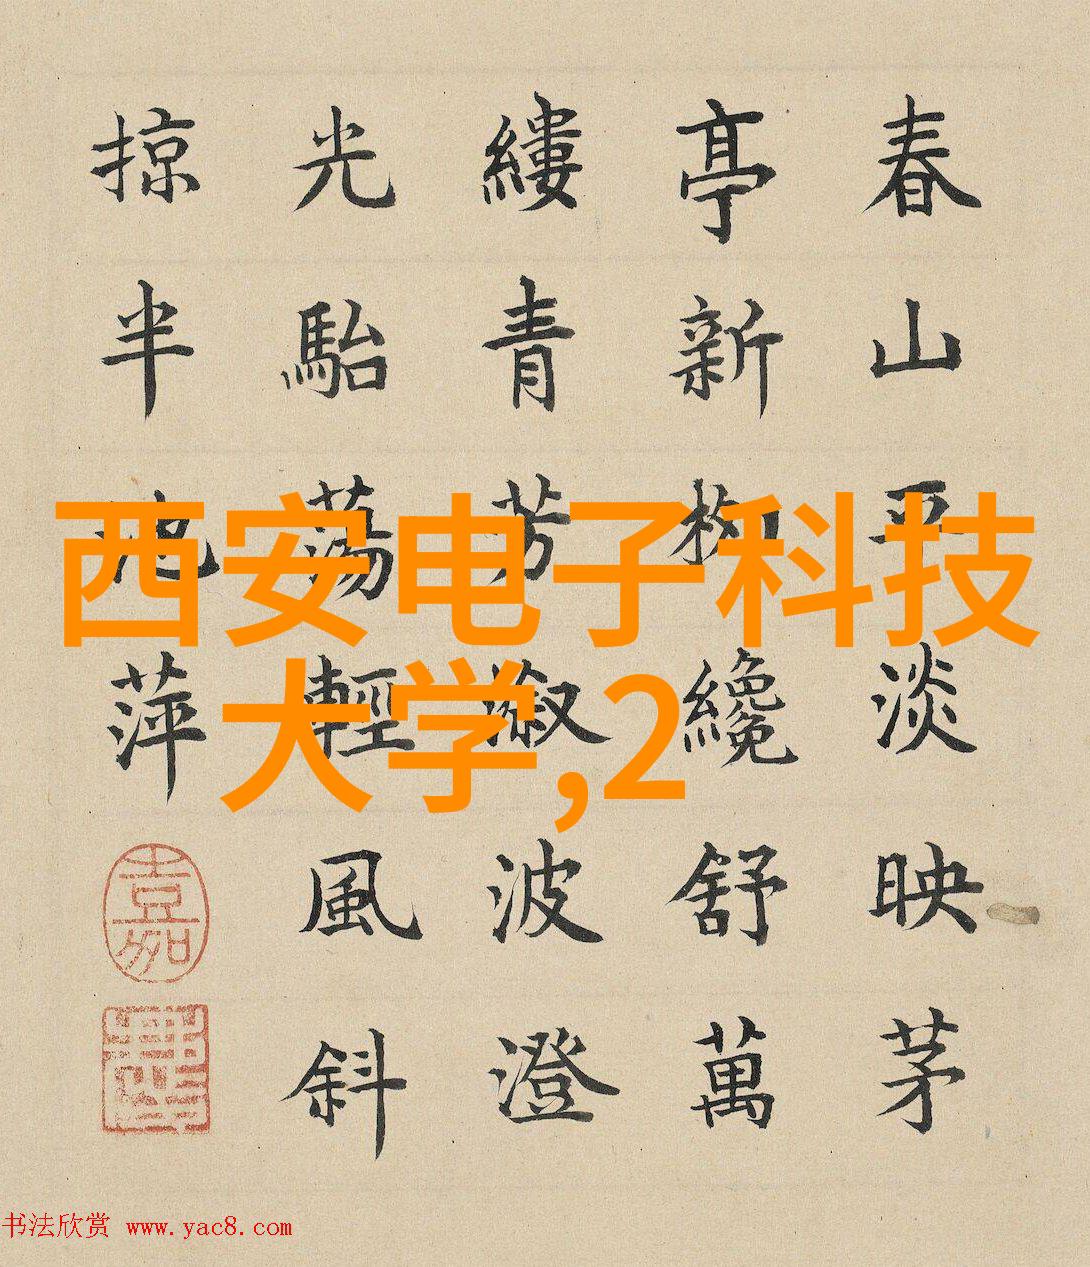 春山平淡映茅
亭新柳纔舒萬
縷青芳溆波澄
光駘蕩輕風斜
掠半池萍
嘉
西安电子科技
大学,2
书法欣赏 www.yac8.com